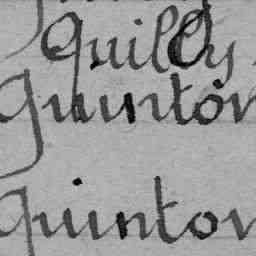 Quilty
Quinton
Quinton